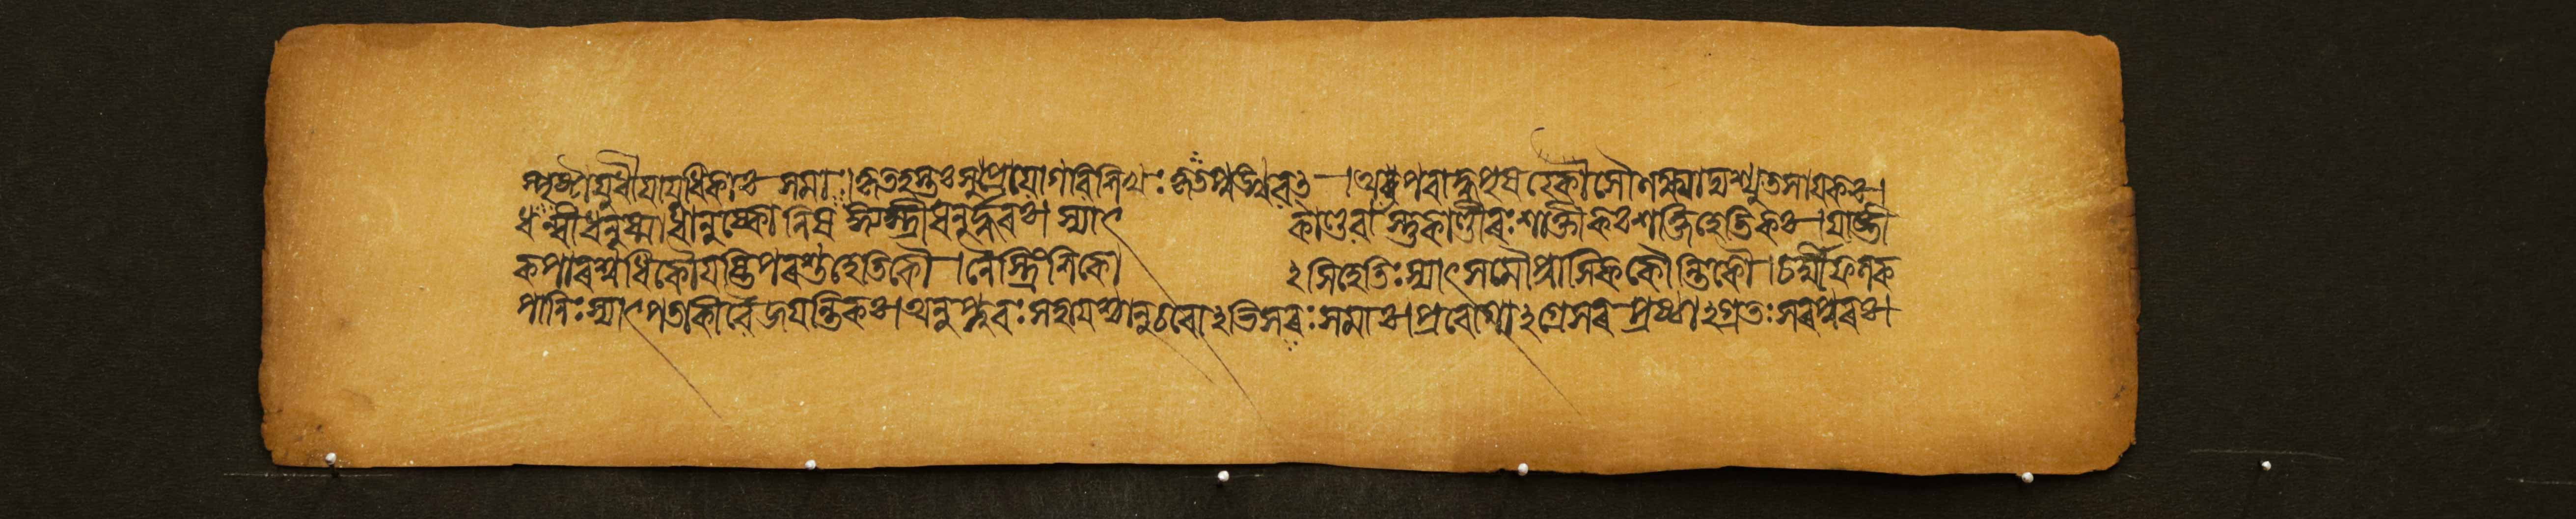 ণ্ডপৃষ্ঠায়ুধীয়ায়ুধিকাঃ সমাঃ। কৃতহস্তঃ সুপ্ৰয়োগবিশিখঃ কৃতপুঙ্খবৎ। অপৰাদ্ধপৃষৎকোসৌলক্ষ্যাদ্যশ্চ্যুতসায়কঃ।
ধন্বীধনুষ্মান্ধানুষ্কোনিষঙ্গ্যস্ত্ৰীধনুৰ্দ্ধৰঃ। স্যাৎ কাণ্ডবাংস্তুকাণ্ডীৰঃ শাক্তীকঃ শক্তিহেতিকঃ। যাষ্টী
কপাৰশ্বধিকৌযষ্টিপৰশুহেতিকৌ। নৈস্ত্ৰিংশিকো ঽসিহেতিঃ স্যাৎ সমৌপ্ৰাসিককৌন্তিকৌ। চৰ্ম্মীফলক
পাণিঃ স্যাৎ পতাকীবৈজয়ন্তিকঃ। অনুপ্লবঃ সহায়শ্চানুচৰোঽভিসৰঃ সমাঃ। পুৰোগাঽগ্ৰেসৰপ্ৰষ্ঠাঽগ্ৰতঃসৰপুৰঃ